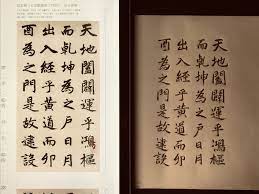 天地闔闢運乎鴻樞
而乾坤為之戶日月
出入經乎黃道而卯
酉為之門是故建設
天地闔闢運乎鴻樞
而乾坤為之戶日月
出入經乎黃道而卯
酉為之門是故建設